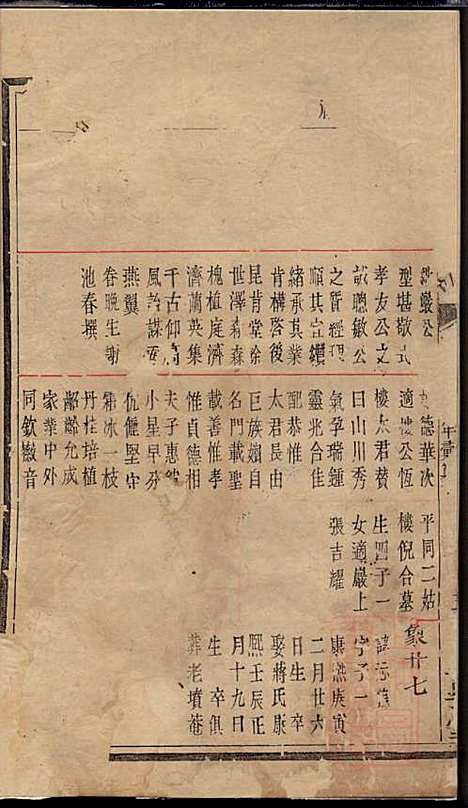 嚴公
型堪敬式
孝友公文
聰敏公
之質經
順其宜鑽
緒承其業
肯構啓後
昆肯堂徐
世澤森森
槐植庭濟
濟蘭英集
千古仰高
風詒謀
燕翼
眷晚生謝
池春撰
德華次
適樓公恆
樓太君贊
曰山川秀
氣孕瑞鍾
靈兆合佳
配恭惟
太君長由
巨族媚自
名門載聖
載善惟孝
惟貞德相
夫子惠
小星早芬
仇儷堅守
霜冰一枝
丹桂培植
齠齡允成
家業中外
同欽徽音
平同二姑
樓倪合墓
生四子一
女適嚴上
張吉耀
象廿七
字子一
康熙庚寅
二月廿六
日生卒
娶蔣氏康
熙壬辰正
月十九日
生卒俱
葬老墳菴